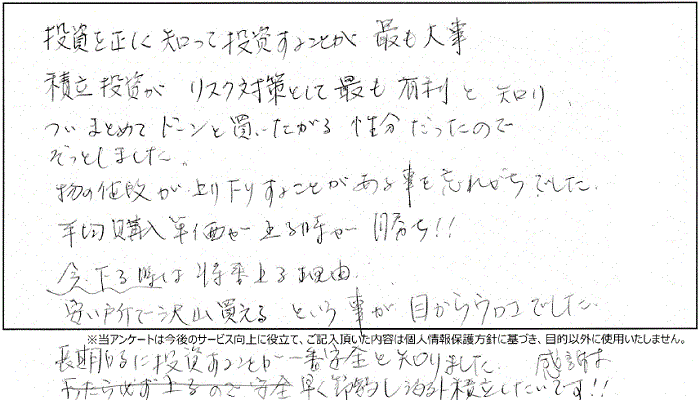 投資を正しく知って投資することが 最も大事
積立投資が リスク対策として最も有利と知り、
ついまとめてドーンと買いたがる 性分だったので
ぞっとしました。
物の値段が上り下りすることがある事を忘れがちでした。
平均購入単価が 上る時が 勝ち!!
今、下る時は 将来上る理由、
安い所で沢山買える という事が 目からウロコでした。
※当アンケートは今後のサービス向上に役立て、ご記入頂いた内容は個人情報保護方針に基づき、目的以外に使用いたしません。
長期的に投資することが一番安全と知りました。
必ず上るので 安全 早く 積立したいです!!